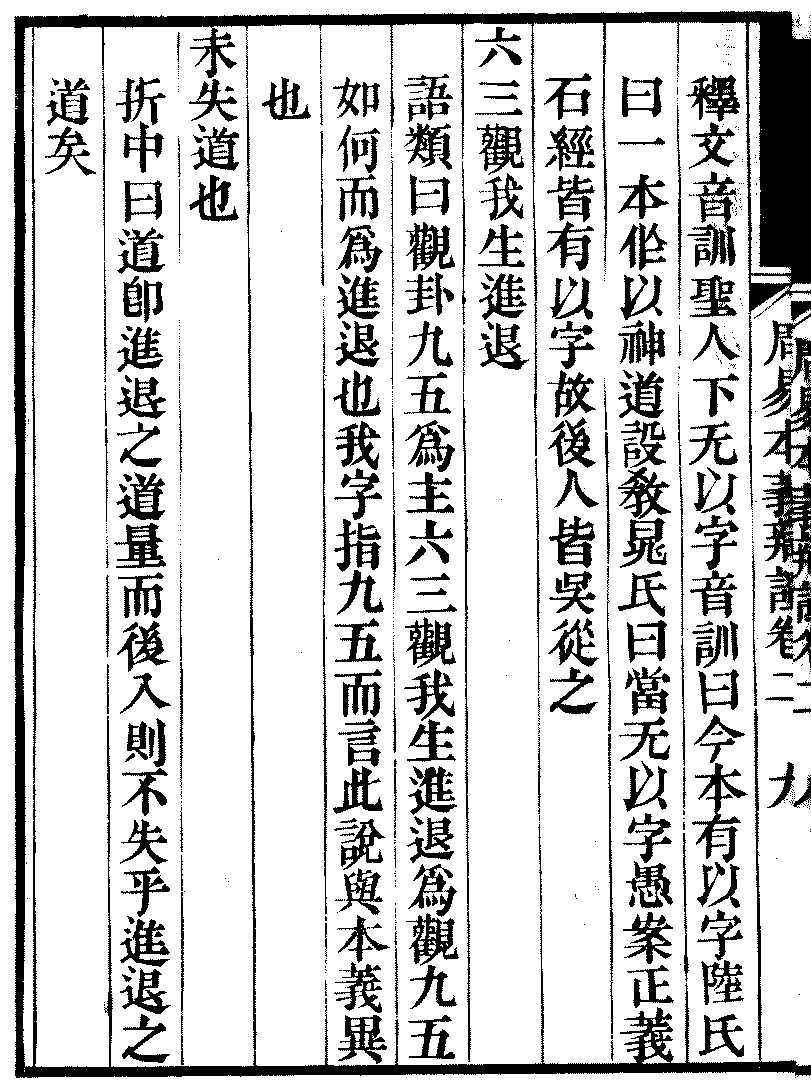 釋文音訓聖人下无以字音訓曰今本有以字陸氏
曰一本作以神道設教晁氏曰當无以字愚案正義
石經皆有以字故後人皆吳從之
六三觀我生進退
語類曰觀卦九五爲主六三觀我生進退爲觀九五
如何而爲進退也我字指九五而言此說與本義異
也
未失道也
折中曰道卽進退之道量而後入則不失乎進退之
道矣
周易本義辨證卷二 九